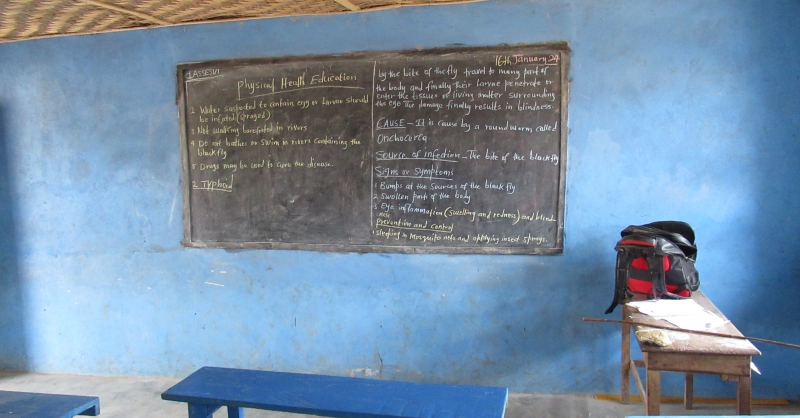 CLASS SIX
Physical Health Education
1 Water suspected to contain egg or Larvae should
be infected (
3 Not walking barefooted in rivers
4 Do not bathe or Swim in rivers containing the
blackfly
5 Drugs may be used to cure the disease.
2 Typhoid
16th January 24
by the bite of the fly travel to many part of
the body and finally their Larvae penetrate or
enter the tissues or living matter surrounding
the eye The damage finally results in blindness.
CAUSE - It is cause by a roundworm called
Onchocerca
Source of infection - The bite of the blackfly
Signs or Symptoms
1 Bumps at the Sources of the blackfly
2 Swollen part of the body
3 Eye inflammation (Swelling and redness) and blind
ness
Prevention and Control
1 Sleeping in Mosquito nets and applying insect sprays.